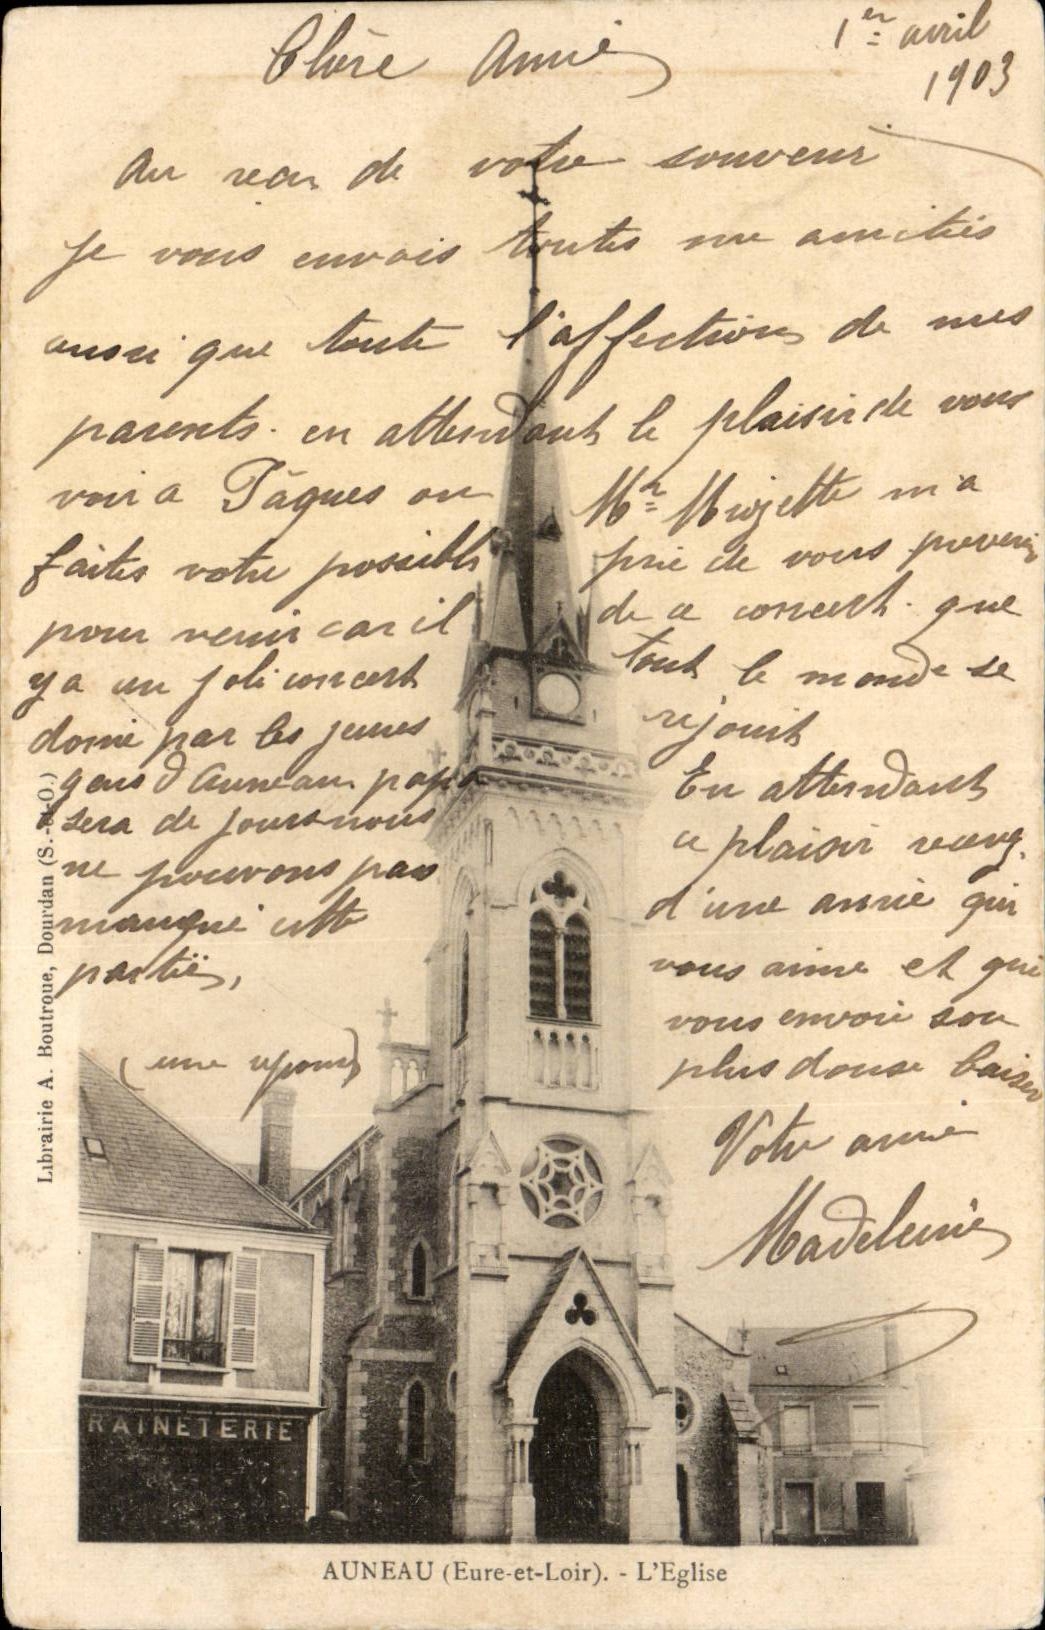 1er avril
1903
Chère Amie
Au reçu de votre souvenir
je vous envois toutes me amitiés
aussi que toute l'affection de mes
parents. en attendant le plaisir de vous
voir a Pâques ou
faites votre possible
pour venir car il
y a un joli concert
donné par les jeunes
gens d'Auneau papa
sera de jour nous
ne pouvons pas
manqué cette
partië,
(une réponse)
Mr m'a
prié de vous prevenir
de ce concert. que
tout le monde se
rejouit
En attendant
ce plaisir recevez
d'une amie qui
vous aime et qui
vous envoie son
plus doux baiser
Votre amie
Madeleine
Librairie A. Boutroue, Dourdan (S.-et-O.)
RAINETERIE
AUNEAU (Eure-et-Loir). - L'Eglise